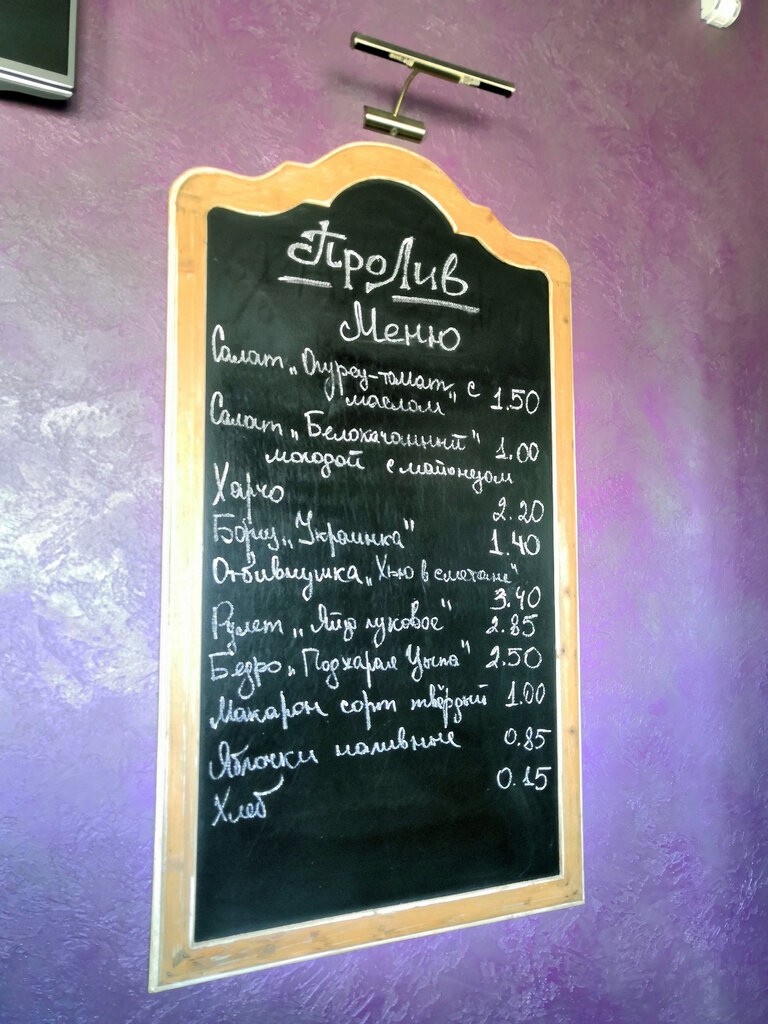 ПроЛив
Меню
Салат „Огурец-томат с
маслом" 1.50
Салат „Белокачанный" 1.00
молодой с майонезом
Харчо 2.20
Борщ „Украинка" 1.40
Отбивнушка „Хью в сметане" 3.40
Рулет „Яйцо луковое" 2.85
Бедро „Поджарая Цыпа" 2.50
Макарон сорт твёрдый 1.00
Яблочки наливные 0.85
Хлеб 0.15